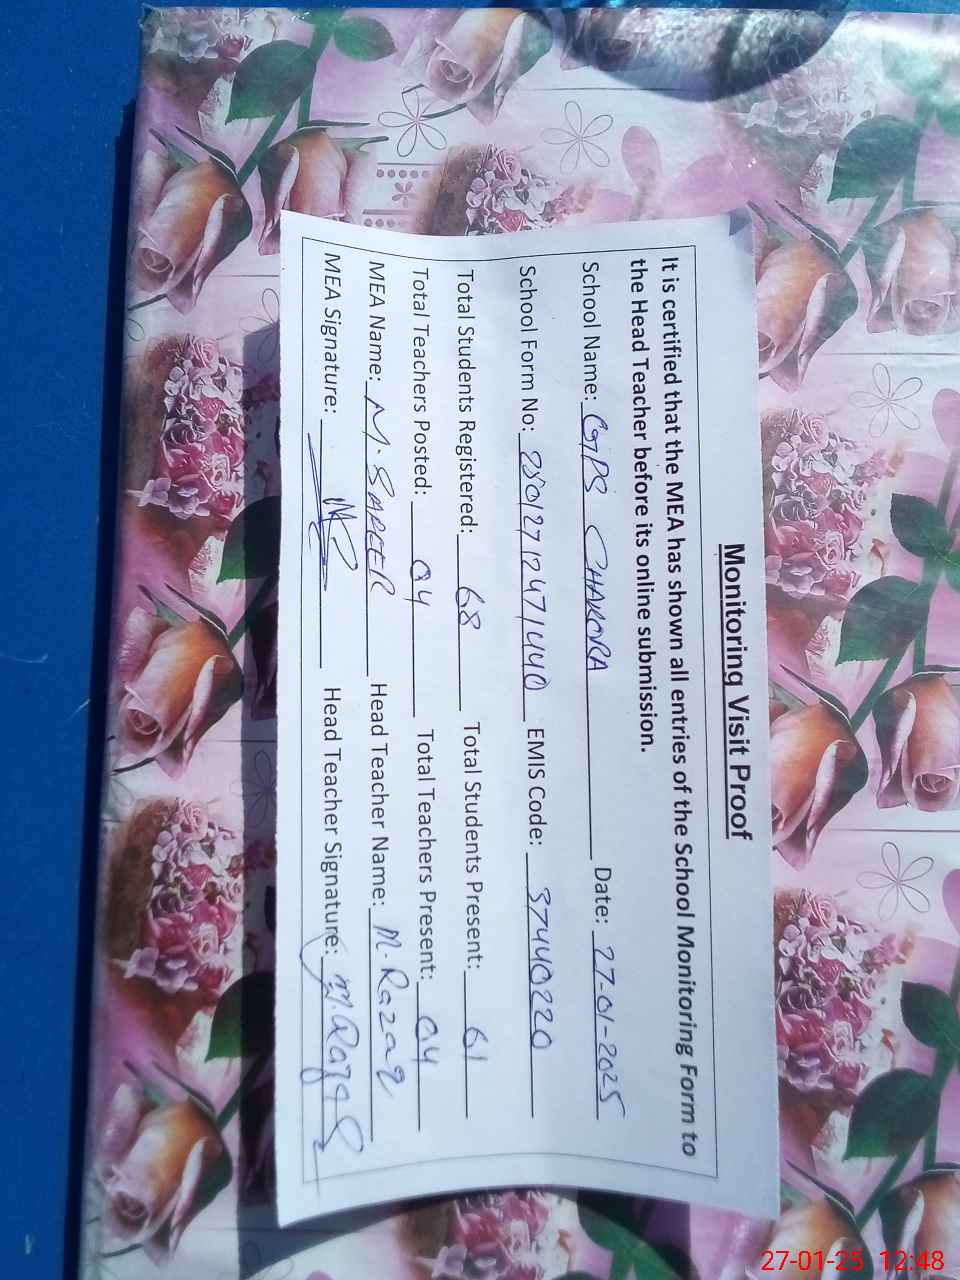 Monitoring Visit Proof
It is certified that the MEA has shown all entries of the School Monitoring Form to
the Head Teacher before its online submission.
School Name: GPS CHAKORA Date: 27-01-2025
School Form No: EMIS Code: 37440220
Total Students Registered: 68 Total Students Present: 61
Total Teachers Posted: 04 Total Teachers Present: 04
MEA Name: M. SAFEER Head Teacher Name: M. Razaq
MEA Signature: Head Teacher Signature: M. Razaq
27-01-25 12:48